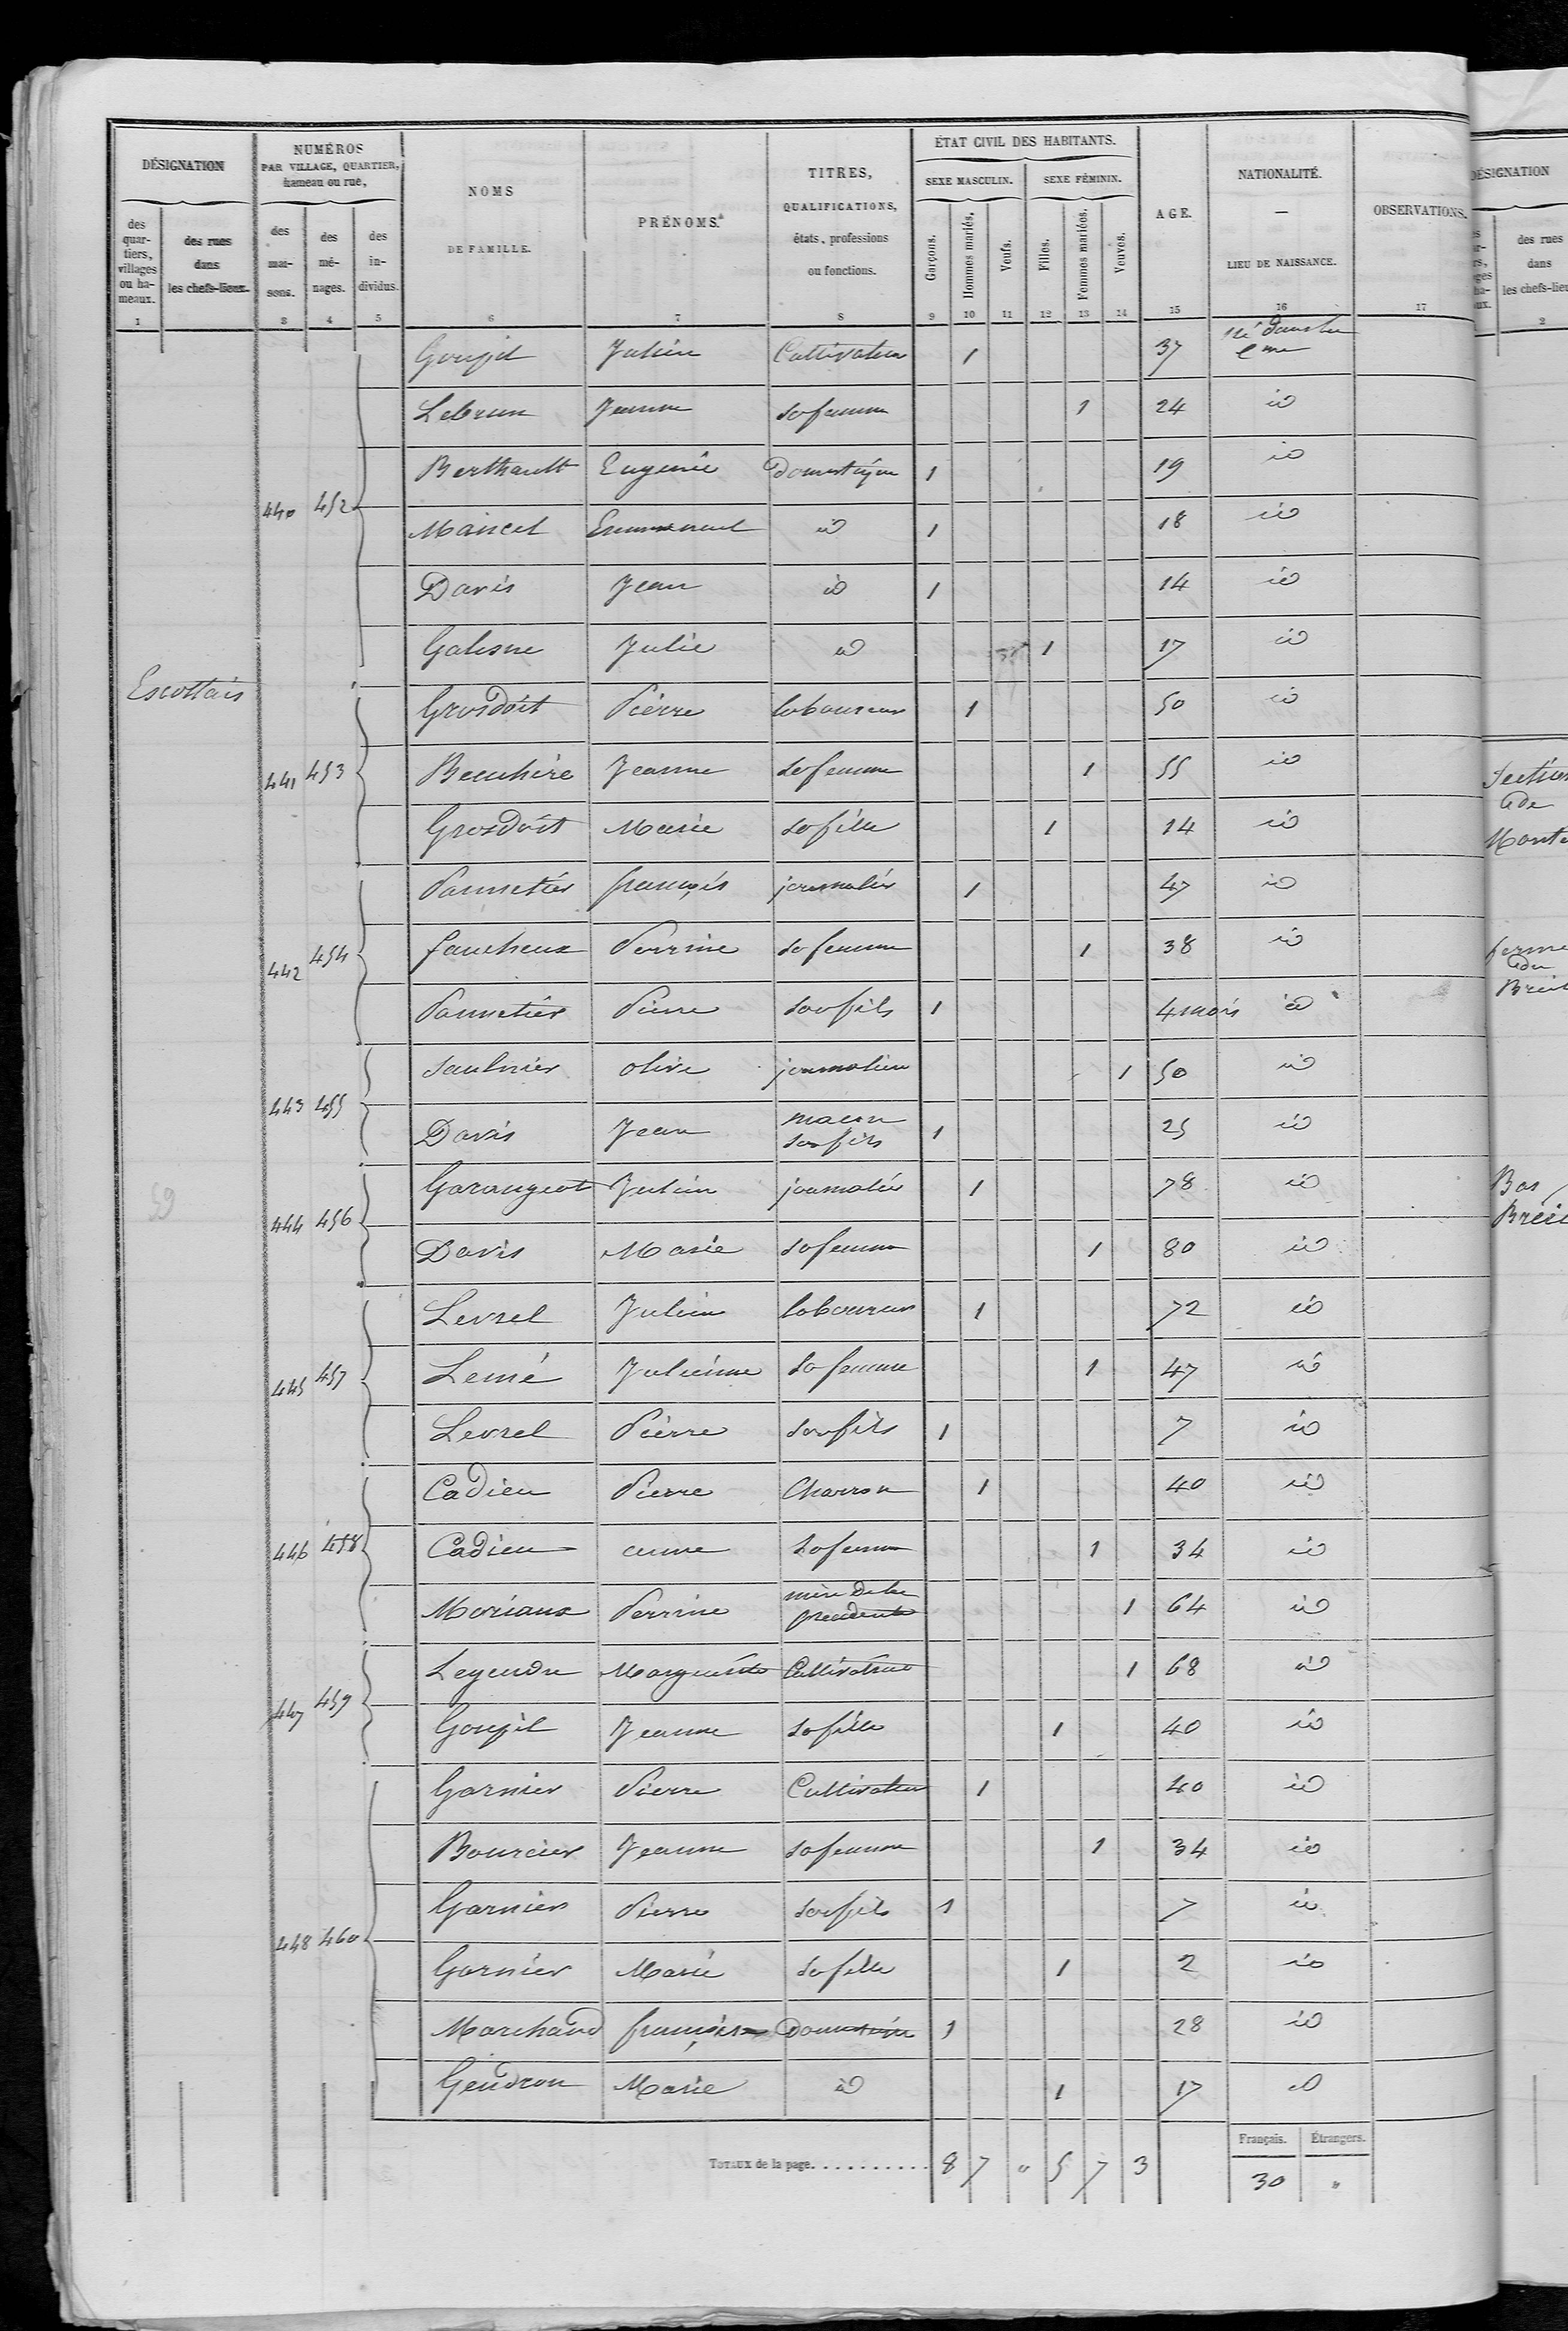 DÉSIGNATION
NUMÉROS
PAR VILLAGE, QUARTIER,
hameau ou rue,
NOMS
DE FAMILLE.
PRÉNOMS.
TITRES,
QUALIFICATIONS,
états, professions
ou fonctions.
ÉTAT CIVIL DES HABITANTS.
SEXE MASCULIN.
SEXE FÉMININ.
AGE.
NATIONALITÉ.
—
LIEU DE NAISSANCE.
OBSERVATIONS.
des
quar-
tiers,
villages
ou ha-
meaux.
des rues
dans
les chefs-lieux.
des
mai-
sons.
des
mé-
nages.
des
in-
dividus.
Garçons.
Hommes mariés.
Veufs.
Filles.
Femmes mariées.
Veuves.
1 3 4 5 6 7 8 9 10 11 12 13 14 15 16 17
Escottais
Goupil Julien Cultivateur 1 37 né dans la
Cne
Lebrun Jeanne sa femme 1 24 id
Berthault Eugenie domestique 1 19 id
440 452 Maincel Emmanuel id 1 18 id
Davis Jean id 1 14 id
Galesne Julie id 1 17 id
Grosdoit Pierre laboureur 1 50 id
441 453 Beauhire Jeanne sa femme 1 55 id
Grosdoit Marie sa fille 1 14 id
Pannetier françois journalier 1 47 id
442 454 faucheux Perrine sa femme 1 38 id
Pannetier Pierre son fils 1 4 mois id
443 455 Saulnier olive journalière 1 50 id
Davis Jean maçon
son fils 1 25 id
444 456 Garangeot Julien journalier 1 78 id
Davis Marie sa femme 1 80 id
Levrel Julien laboureur 1 72 id
445 457 Lemé Julienne sa femme 1 47 id
Levrel Pierre son fils 1 7 id
Cadieu Pierre Charron 1 40 id
446 458 Cadieu anne sa femme 1 34 id
Moriaux Perrine mère de la
precedente 1 64 id
447 459 Legendre Marguerite Cultivatrice 1 68 id
Goupil Jeanne sa fille 1 40 id
Garnier Pierre Cultivateur 1 40 id
Bourcier Jeanne sa femme 1 34 id
Garnier Pierre son fils 1 7 id
448 460 Garnier Marie sa fille 1 2 id
Marchand françois Domestique 1 28 id
Gendron Marie id 1 17 id
TOTAUX de la page. . . . . . . . . . . 8 7 " 5 7 3
Français. Étrangers.
30 "
DÉSIGNATION
des rues
dans
les chefs-lieu
2
Section
de
Monte
ferme
du
Breil
Bas
Breil